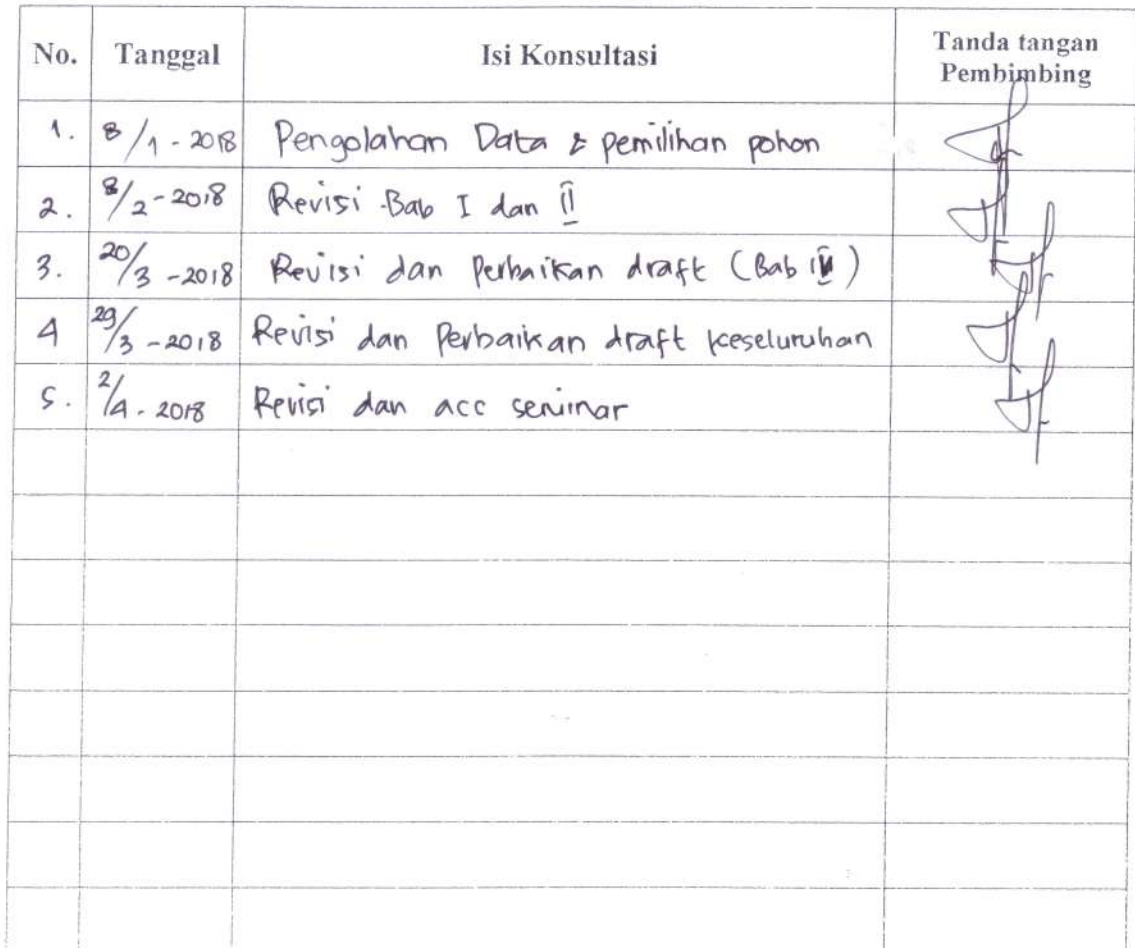 No. Tanggal Isi Konsultasi Tanda tangan
Pembimbing
1. 8/1 - 2018 Pengolahan Data & pemilihan pohon
2. 8/2 - 2018 Revisi Bab I dan II
3. 20/3 - 2018 Revisi dan Perbaikan draft (Bab IV)
4 29/3 - 2018 Revisi dan Perbaikan draft keseluruhan
5. 2/4 - 2018 Revisi dan acc seminar